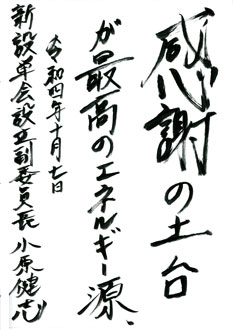 感謝の土台
が最高のエネルギー源、
令和四年十月七日
新設単会設立副委員長 小原健志